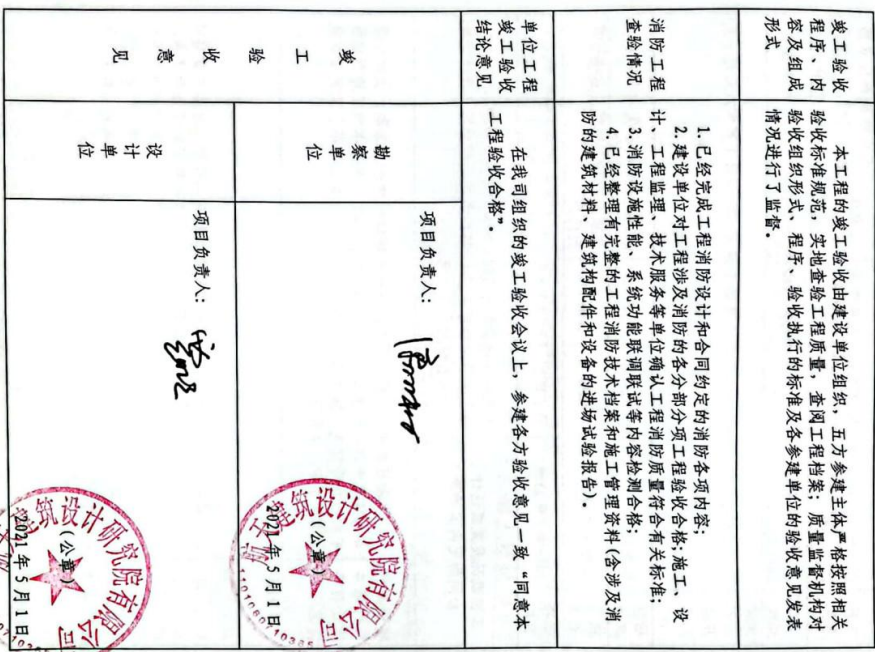 竣工验收
程序、内
容及组成
形式
本工程的竣工验收由建设单位组织，五方参建主体严格按照相关
验收标准规范，实地查验工程质量，查阅工程档案；质量监督机构对
验收组织形式、程序、验收执行的标准及各参建单位的验收意见发表
情况进行了监督。
消防工程
查验情况
1. 已经完成工程消防设计和合同约定的消防各项内容；
2. 建设单位对工程涉及消防的各分部分项工程验收合格；施工、设
计、工程监理、技术服务等单位确认工程消防质量符合有关标准；
3. 消防设施性能、系统功能联调联试等内容检测合格；
4. 已经整理有完整的工程消防技术档案和施工管理资料（含涉及消
防的建筑材料、建筑构配件和设备的进场试验报告）。
单位工程
竣工验收
结论意见
在我司组织的竣工验收会议上，参建各方验收意见一致“同意本
工程验收合格”。
竣工验收意见
勘察单位
项目负责人：
（公章）
2021 年 5 月 1 日
航天建筑设计研究院有限公司
设计单位
项目负责人：
（公章）
2021 年 5 月 1 日
建筑设计研究院有限公司